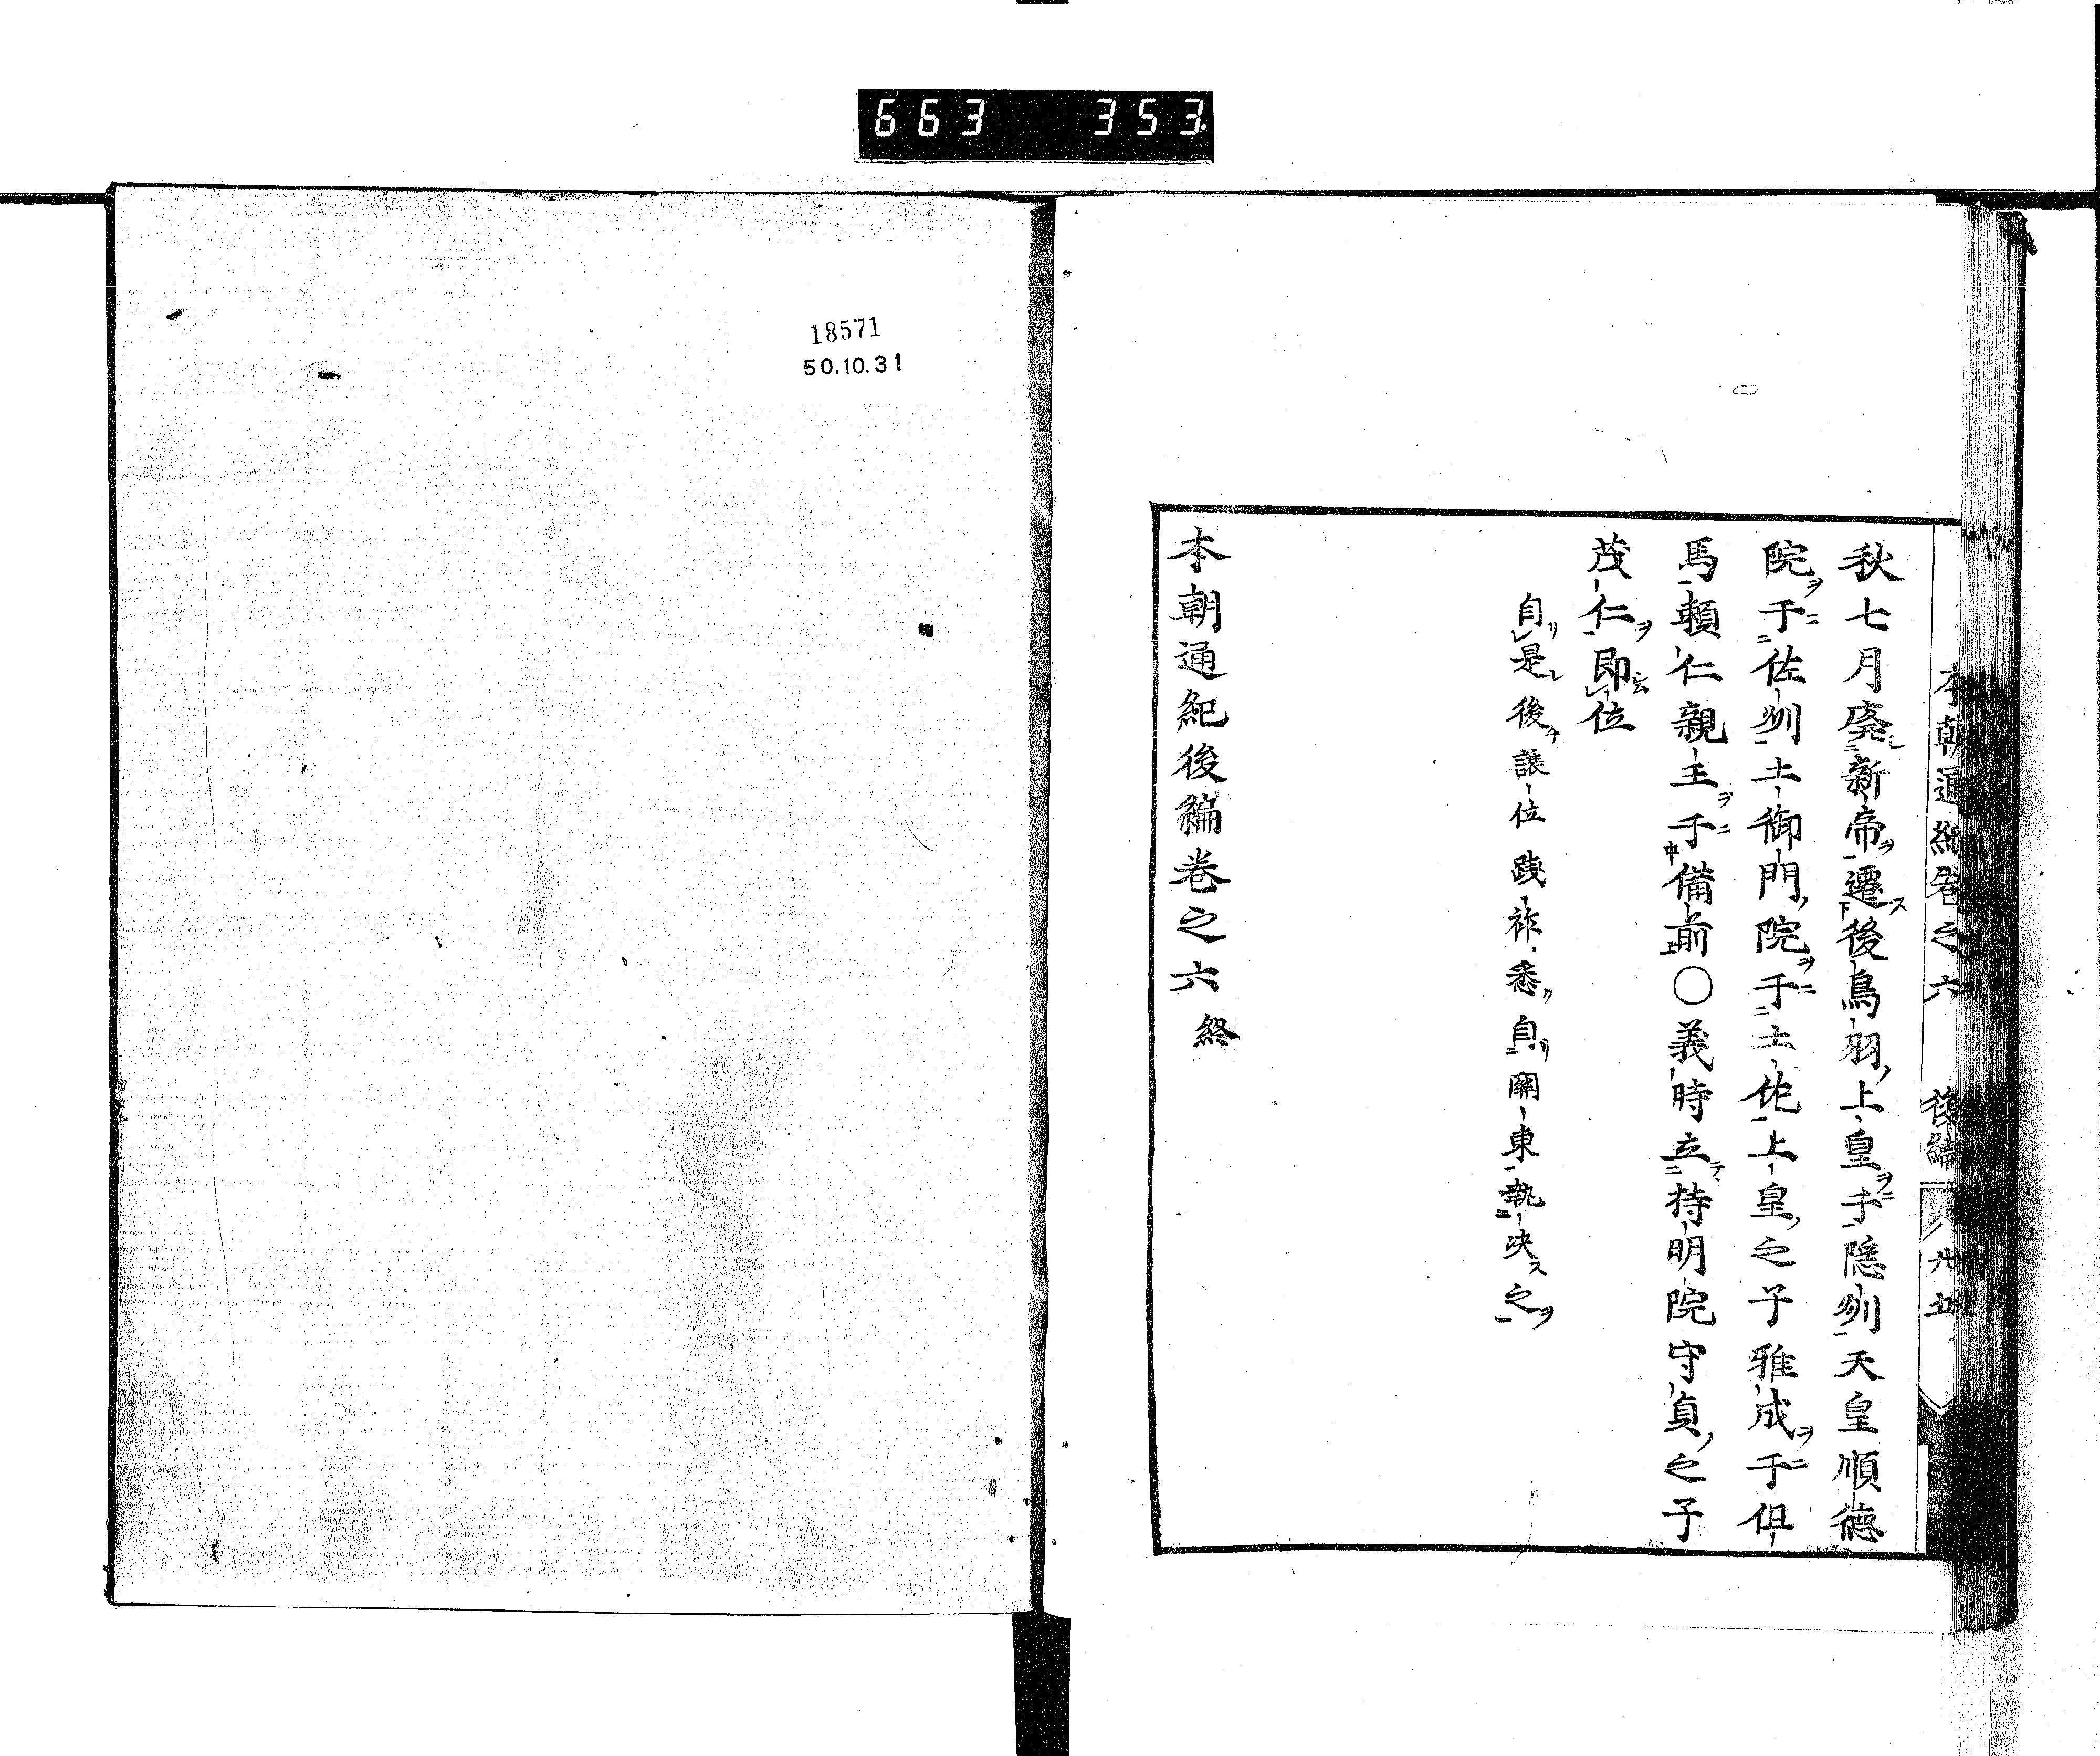 663 353
本朝通紀卷之六 後編 卅五
秋七月廃新帝遷後鳥羽上皇于隠州天皇順徳
院于佐州土御門院于土佐上皇之子雅成于但
馬頼仁親王于備前〇義時立持明院守貞之子
茂仁即位
自是後譲位踐祚悉自關東執决之
本朝通紀後編卷之六終
18571
50.10.31